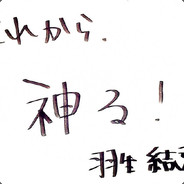 これから、
神る！
羽生 結